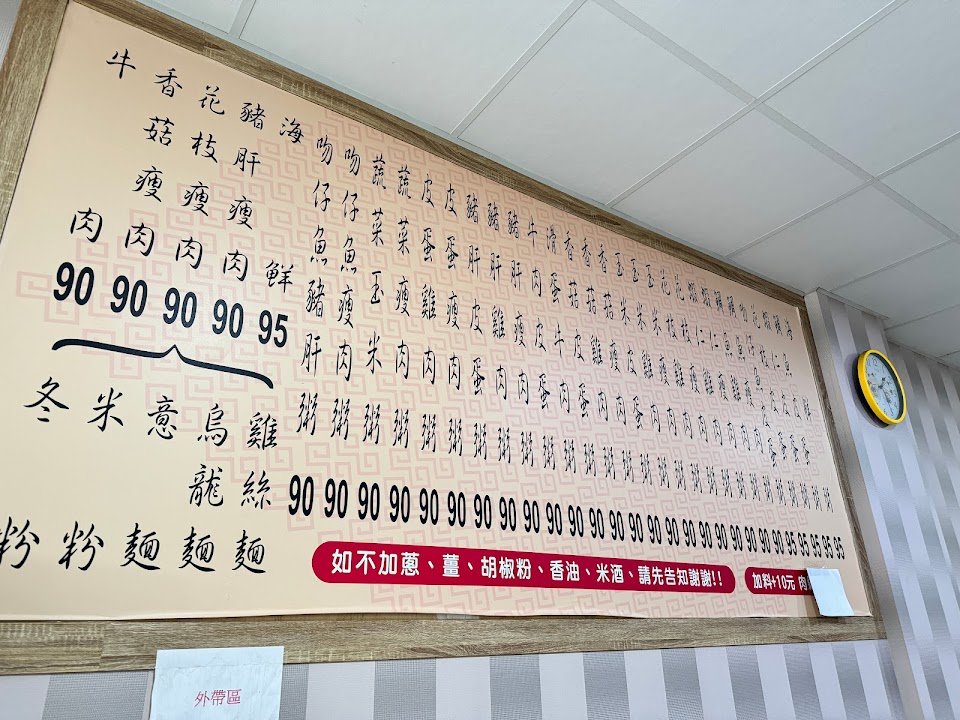 海鮮粥 95
魚皮蛋粥 95
蝦仁皮蛋粥 95
花枝皮蛋粥 95
吻仔魚皮蛋粥 95
魚瘦肉粥 90
魚雞肉粥 90
蝦仁瘦肉粥 90
蝦仁雞肉粥 90
花枝瘦肉粥 90
花枝雞肉粥 90
玉米瘦肉粥 90
玉米雞肉粥 90
玉米皮蛋粥 90
香菇瘦肉粥 90
香菇雞肉粥 90
香菇皮蛋粥 90
滑蛋牛肉粥 90
牛肉皮蛋粥 90
豬肝瘦肉粥 90
豬肝雞肉粥 90
豬肝皮蛋粥 90
皮蛋瘦肉粥 90
皮蛋雞肉粥 90
蔬菜瘦肉粥 90
蔬菜玉米粥 90
吻仔魚瘦肉粥 90
吻仔魚豬肝粥 90
海鮮 95
豬肝瘦肉 90
花枝瘦肉 90
香菇瘦肉 90
牛肉 90
雞絲麵
烏龍麵
意麵
米粉
冬粉
如不加蔥、薑、胡椒粉、香油、米酒、請先告知謝謝!!
加料+10元 肉
外帶區